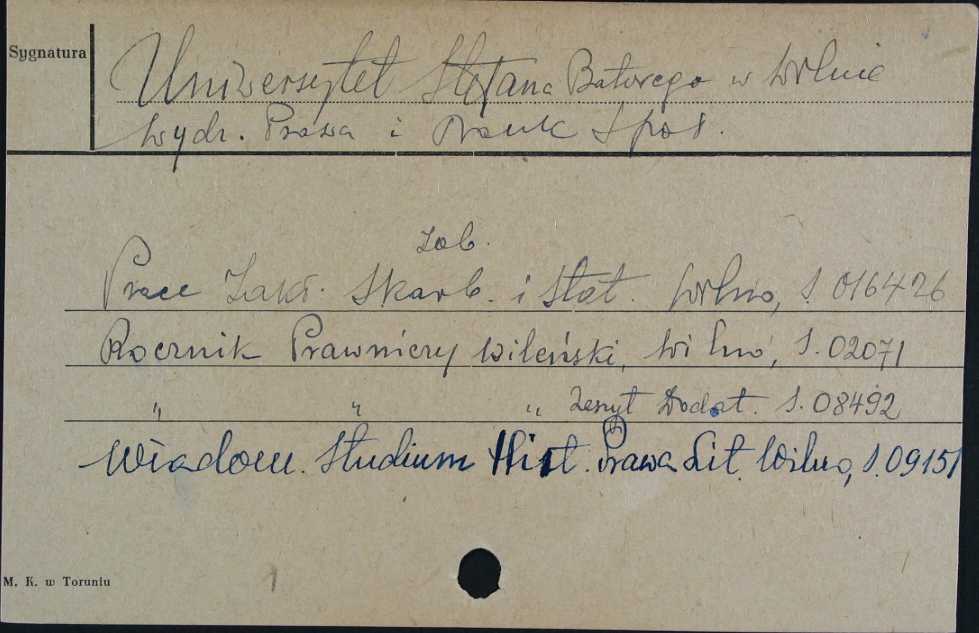 Sygnatura
Uniwersytet Stefana Batorego w Wilnie
Wydz. Prawa i Nauk Społ.
Zob.
Prace Zakł. Skarb. i Stat. Wilno, S. 016426
Rocznik Prawniczy Wileński, Wilno, S. 02071
" " " Zeszyt Dodat. S. 08492
Wiadom. Studium Hist. Prawa Lit. Wilno, S. 09151
M. K. w Toruniu